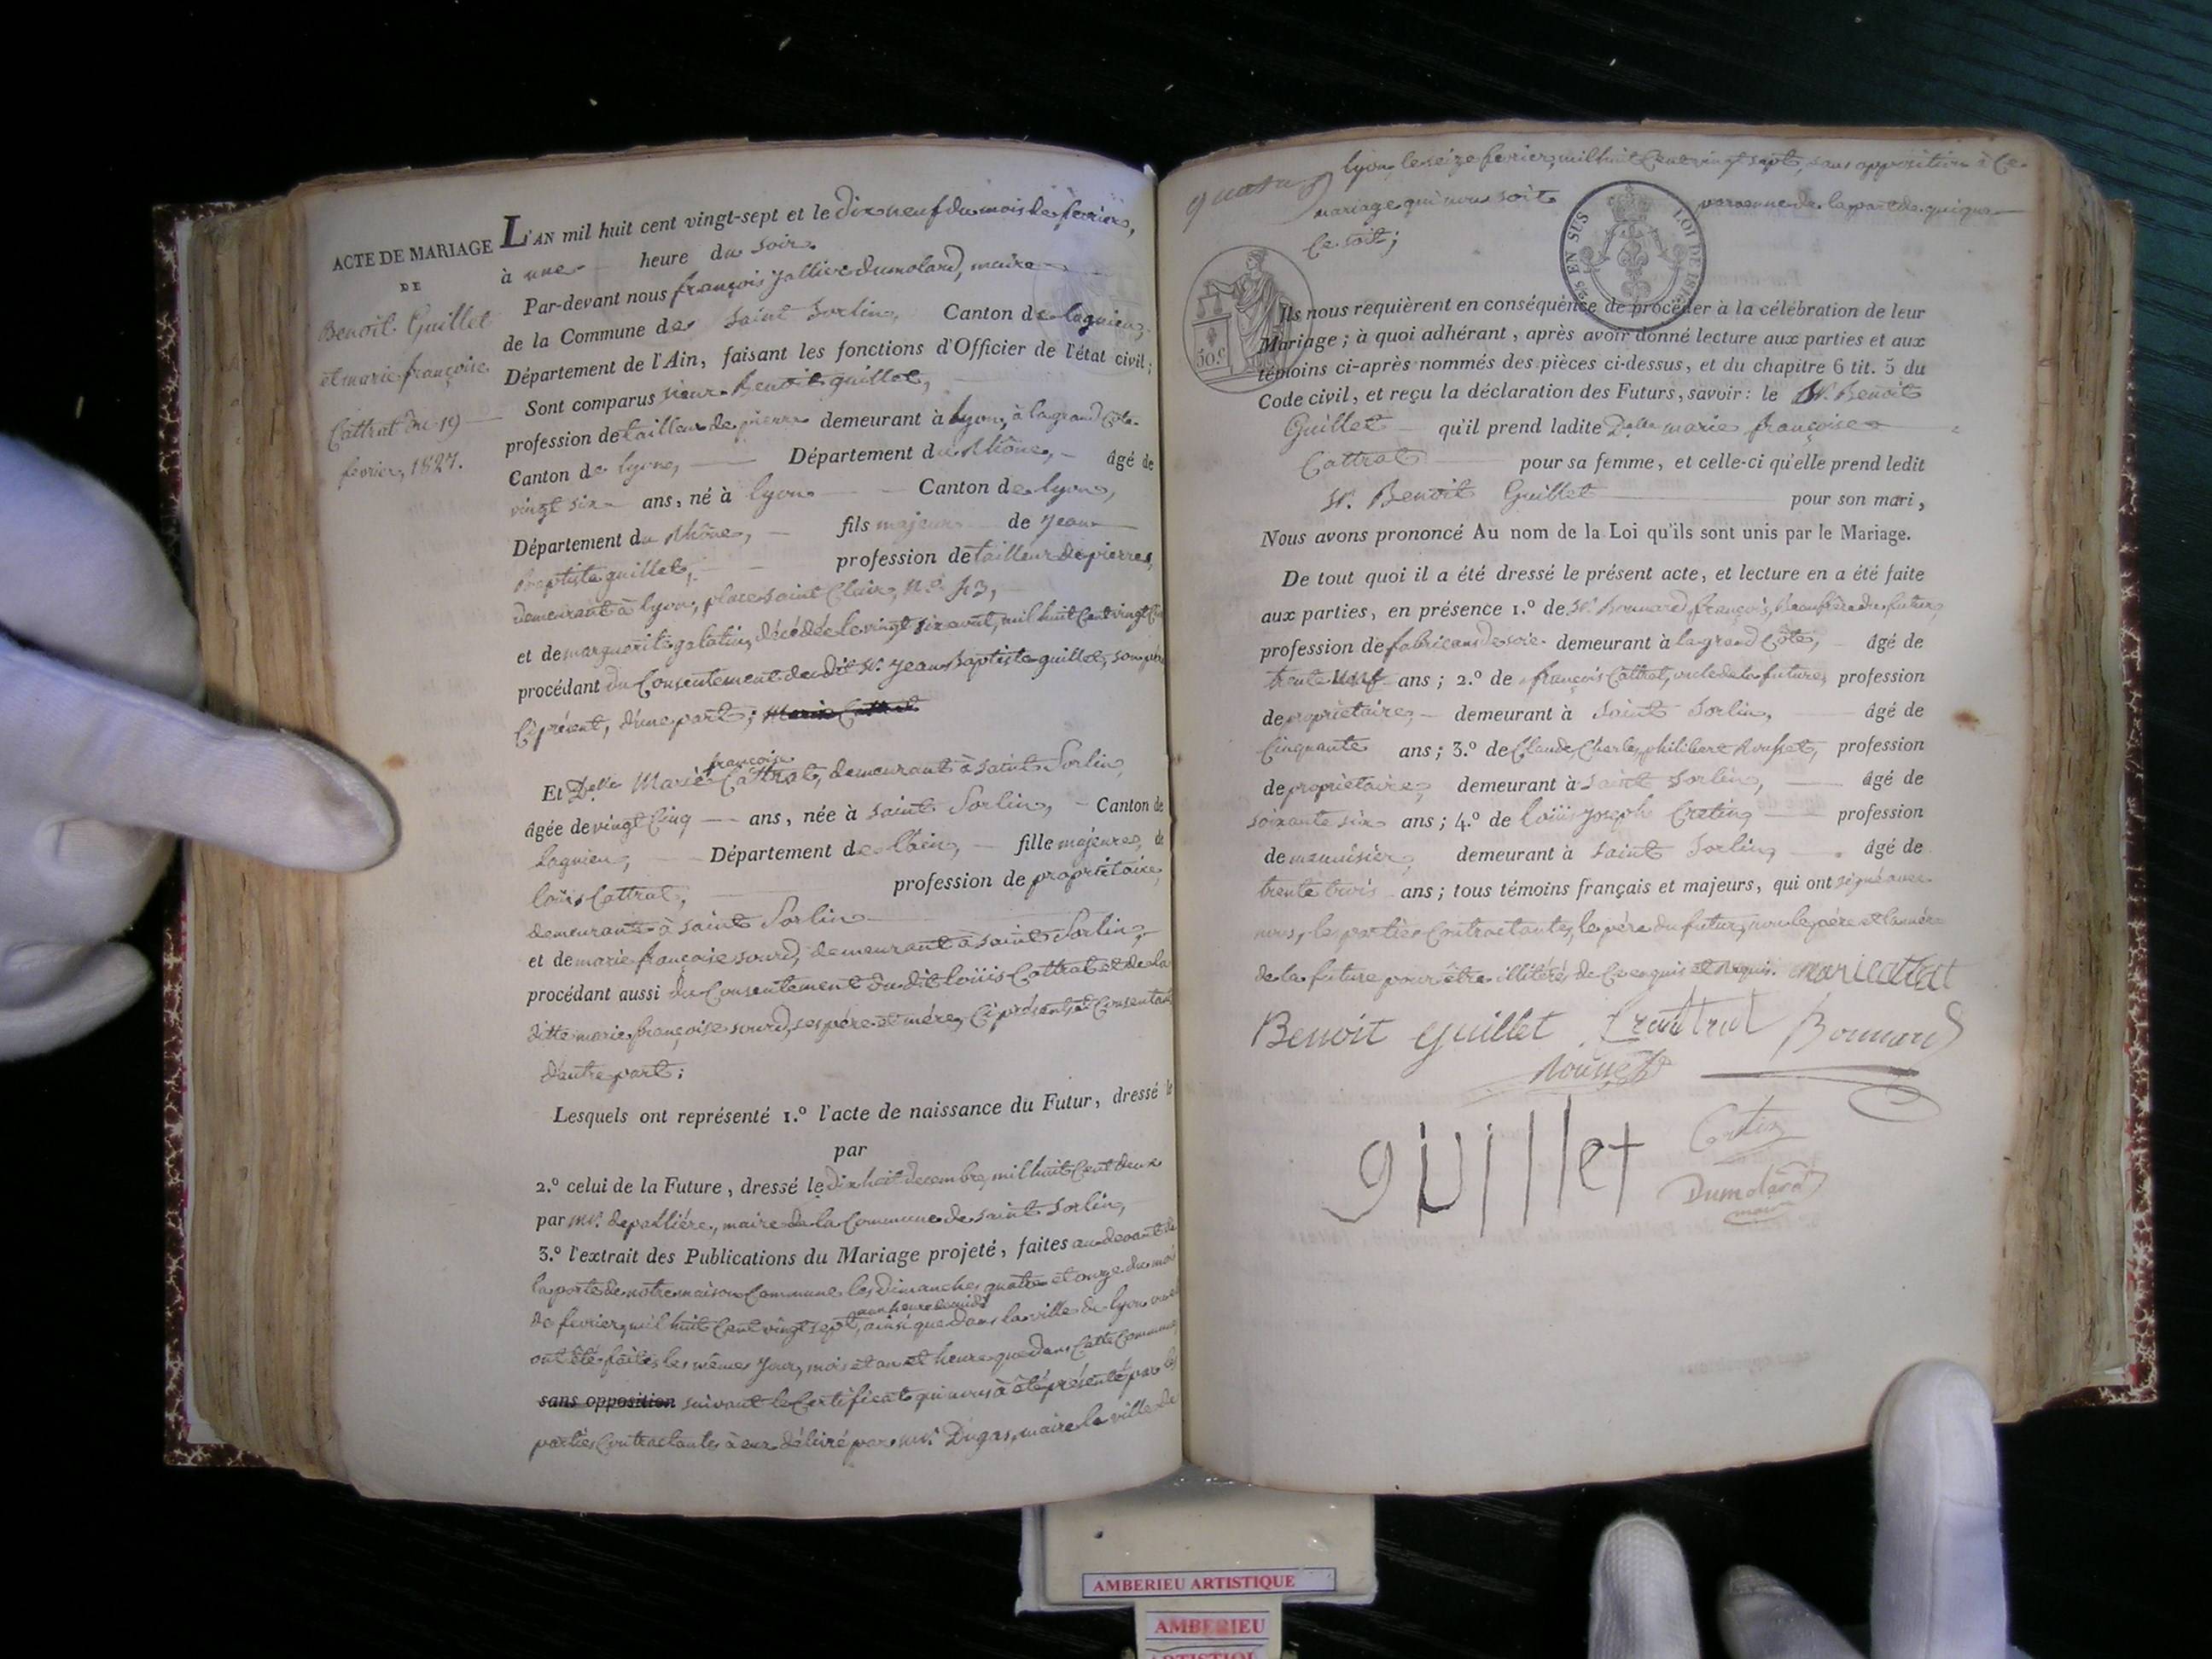 ACTE DE MARIAGE
DE
Benoit Guillet
et marie françoise
Cattrat du 19
fevrier, 1827.
L'AN mil huit cent vingt-sept et le dix neuf du mois de fevrier,
à une heure du soir
Par-devant nous françois Jallier Dumolard, maire
de la Commune de Saint Sorlin, Canton de lagnieu,
Département de l'Ain, faisant les fonctions d'Officier de l'état civil;
Sont comparus sieur Benoit guillet,
profession de tailleur de pierre demeurant à lyon, à la grand Côte
Canton de lyon, Département du Rhône, âgé de
vingt six ans, né à lyon Canton de lyon,
Département du Rhône, fils majeur de Jean
Baptiste guillet, profession de tailleur de pierres,
demeurant à lyon, place saint Clair, N.o
et de marguerite galatin, décédée le vingt six août, mil huit Cent vingt
procédant du Consentement du dit Sr. Jean Baptiste guillet, son père
Ci présent, d'une part; Marie Cattrat
françoise
Et Delle Marie Cattrat, demeurant à Saint Sorlin,
âgée de vingt Cinq ans, née à Saint Sorlin, Canton de
lagnieu, Département de l'ain, fille majeure, de
loüis Cattrat, profession de propriétaire,
demeurant à saint Sorlin
et de marie françoise sourd, demeurant à saint Sorlin,
procédant aussi du Consentement du dit loüis Cattrat et de la
ditte marie françoise sourd, ses père et mère, Ci présents et Consentant
d'autre part;
Lesquels ont représenté 1.º l'acte de naissance du Futur, dressé le
par
2.º celui de la Future, dressé le dix huit decembre, mil huit Cent deux
par mr. depallière, maire de la Commune de Saint Sorlin,
3.º l'extrait des Publications du Mariage projeté, faites au devant de
la porte de notre maison Commune les Dimanches quatre et onze du mois
a une heure de midi
de fevrier, mil huit Cent vingt sept, ainsi que dans la ville de lyon
ont été faites les mêmes jour, mois et an et heure que dans Cette Commune
sans opposition suivant le Certificat qui nous à été présenté par les
parties Contractantes à eux délivré par mr. Dugas, maire la ville de
lyon, le seize fevrier, mil huit Cent vingt sept, sans opposition à Ce
mariage qui nous soit parvenue de la part de qui que
Ce soit;
25 C. EN SUS
LOI DE 1816
50.c
Ils nous requièrent en conséquence de procéder à la célébration de leur
Mariage; à quoi adhérant, après avoir donné lecture aux parties et aux
témoins ci-après nommés des pièces ci-dessus, et du chapitre 6 tit. 5 du
Code civil, et reçu la déclaration des Futurs, savoir: le Sr. Benoit
Guillet qu'il prend ladite Delle marie françoise
Cattrat pour sa femme, et celle-ci qu'elle prend ledit
Sr. Benoit Guillet pour son mari,
Nous avons prononcé Au nom de la Loi qu'ils sont unis par le Mariage.
De tout quoi il a été dressé le présent acte, et lecture en a été faite
aux parties, en présence 1.º de Sr. Bonnard françois, Beaufrère du futur,
profession de fabricant de soie demeurant à la grand Côte, âgé de
trente neuf ans; 2.º de françois Cattrat, oncle de la future, profession
de propriétaire, demeurant à Saint Sorlin, âgé de
Cinquante ans; 3.º de Claude, Charles, philibert Rousset, profession
de propriétaire, demeurant à Saint Sorlin, âgé de
soixante six ans; 4.º de loüis Joseph Cretin, profession
de menuisier, demeurant à Saint Sorlin, âgé de
trente trois ans; tous témoins français et majeurs, qui ont signé avec
nous, les parties Contractantes, le père du futur, non le père et la mère
de la future pour être illitérés de Ce enquis et requis. marie cattrat
Benoit guillet Cattrat Bonnard
Rousset
guillet Cretin
Dumolard
maire
AMBERIEU ARTISTIQUE
AMBERIEU
ARTISTIQUE